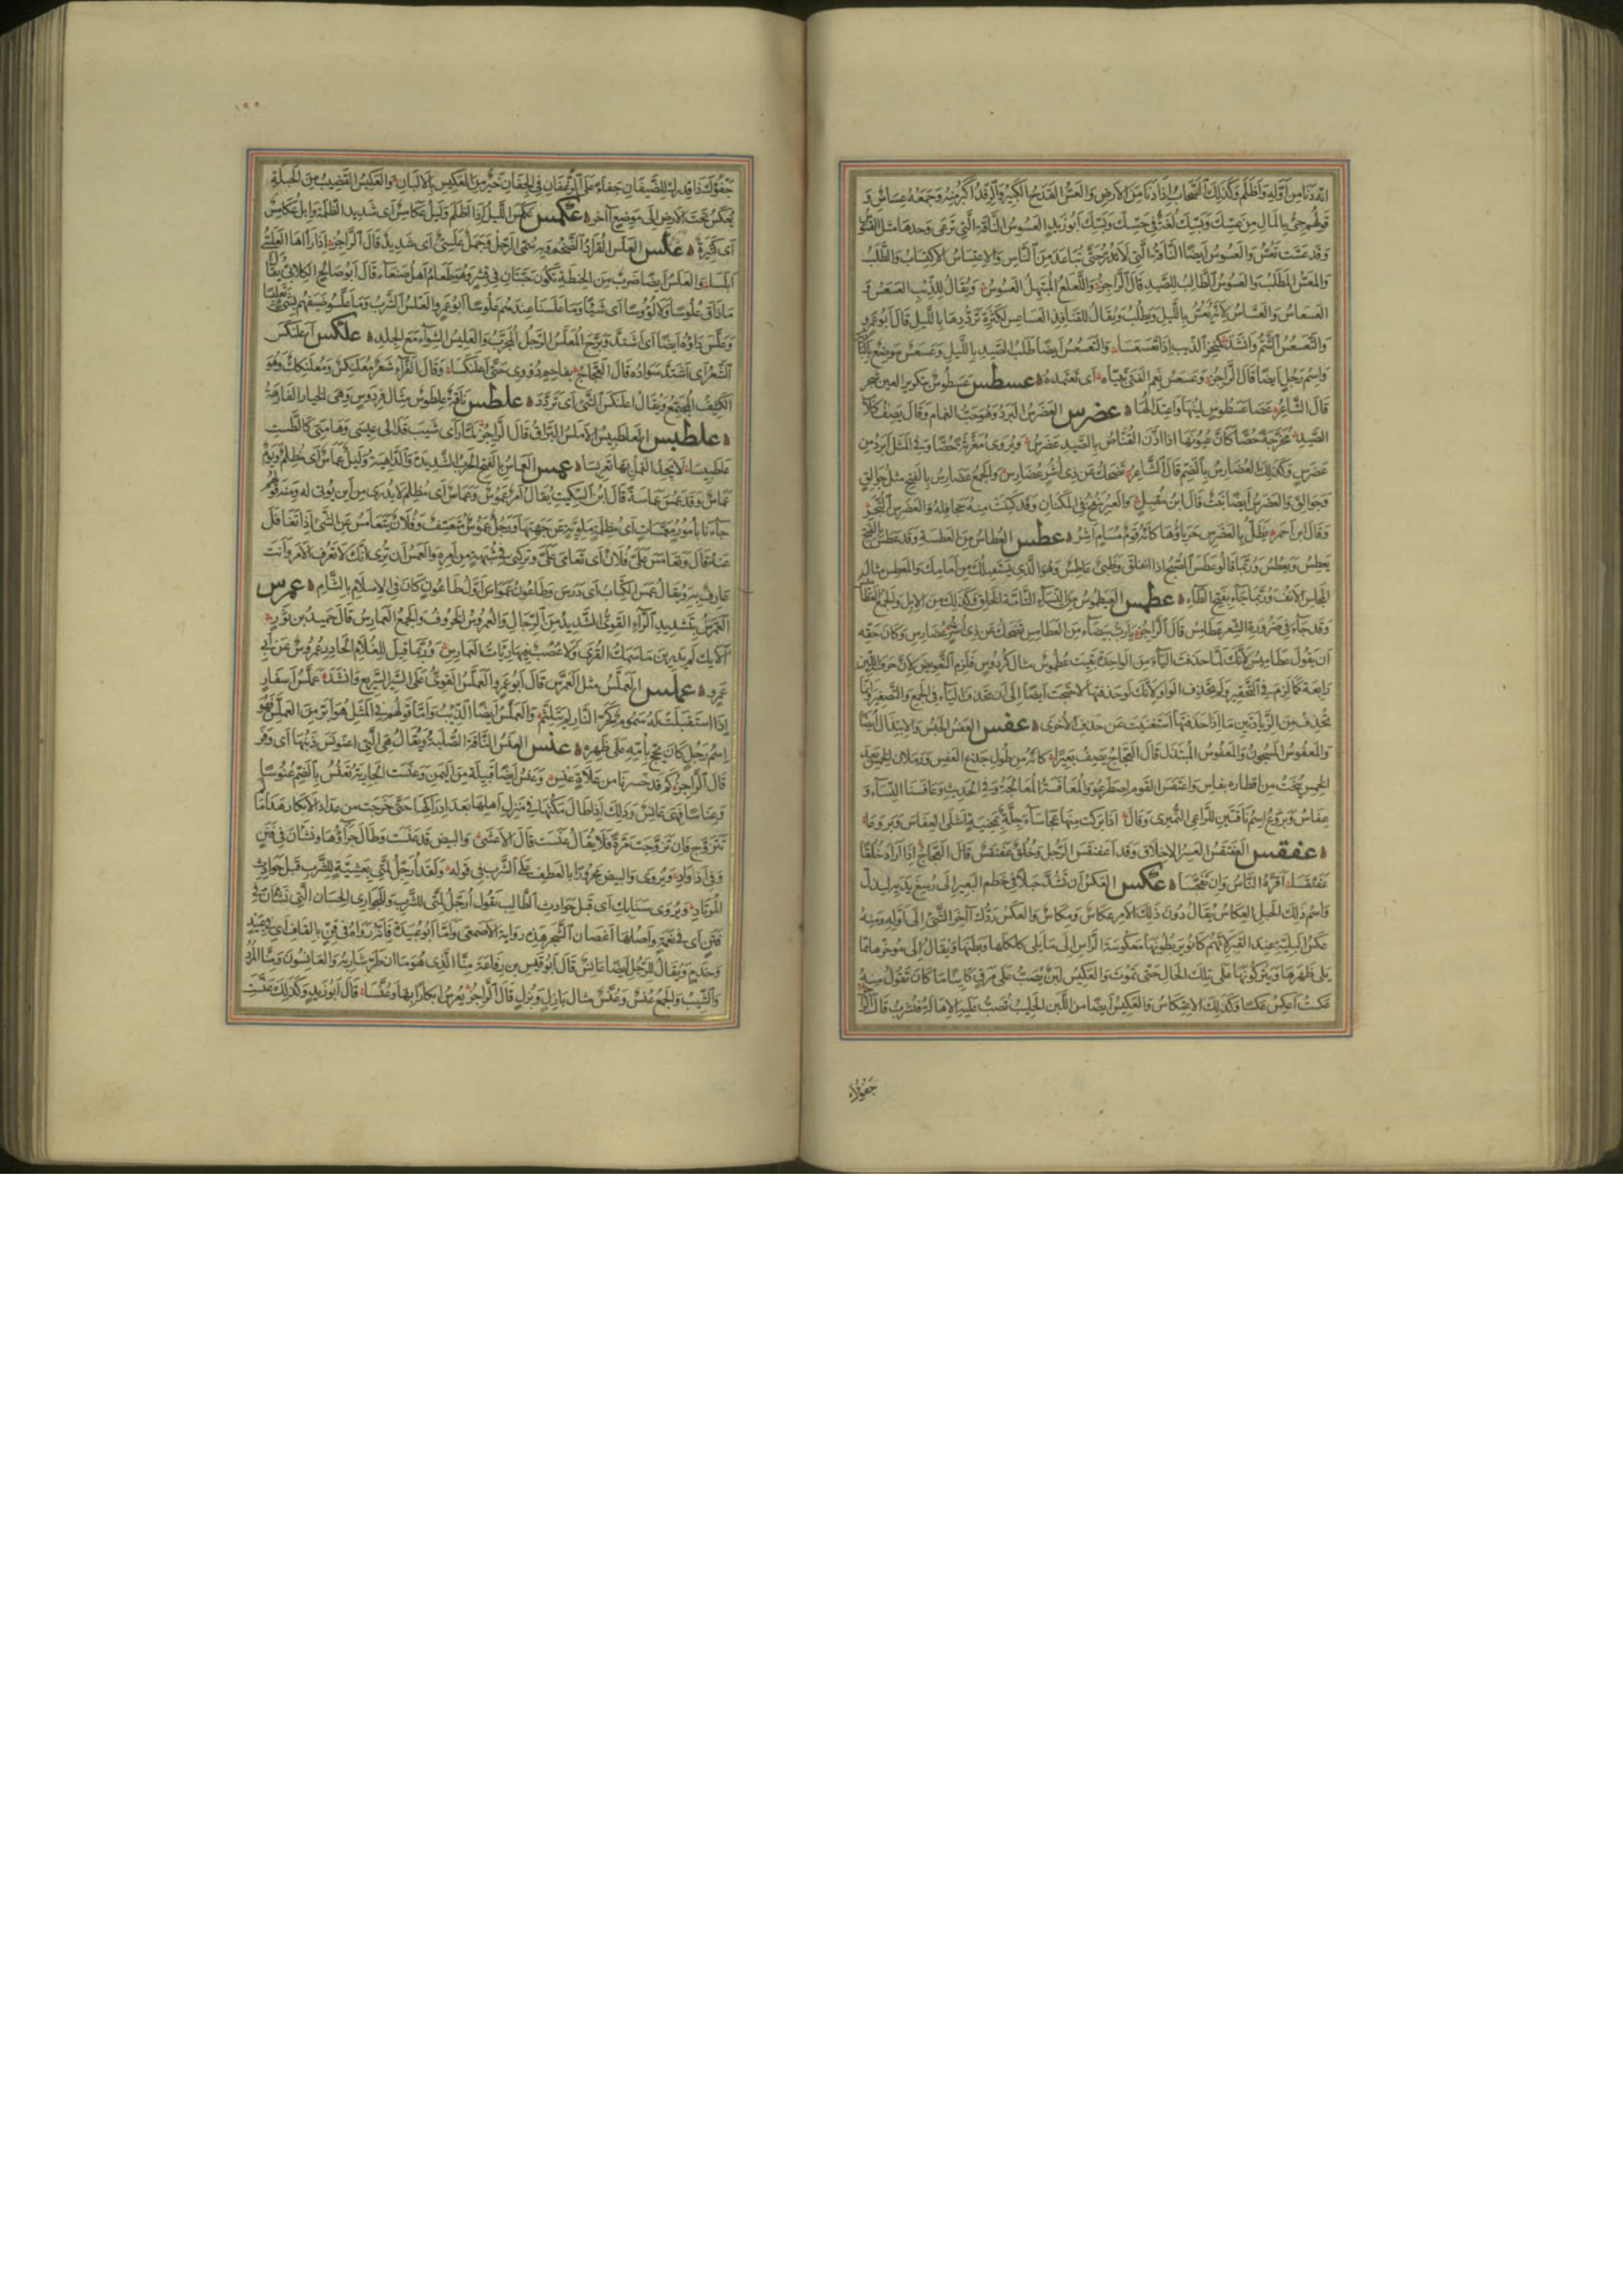 انه دنا من اوله واظلم وكذلك السحاب اذا دنا من الارض والعس القدح الكبير والرفد اكبر منه وجمعه عساس و
قولهم جئ بالمال من عسك وبسك لغة في حسك وبسك ابو زيد العسوس الناقة التي ترعى وحدها مثل القسوس
وقد عست تعس والعسوس ايضا الناقة التي لا تدر حتى تباعد من الناس والاعتساس الاكتساب والطلب
والمعس المطلب والعسوس الطالب للصيد قال الراجز واللعلع المهتبل العسوس ويقال للذئب العسعس و
العسعاس والعساس لانه يعس بالليل ويطلب ويقال للقنافذ العساعس لكثرة ترددها بالليل قال ابو عمرو
والتعسعس الشم وانشد كمنخر الذيب اذا تعسعسا والتعسعس ايضا طلب الصيد بالليل وعسعس موضع بالبادية
واسم رجل ايضا قال الراجز وعسعس نعم الفتى تبياه اى تعتمده عسطس عسطوس بتكرير العين شجر
قال الشاعر عصا عسطوس لينها واعتدالها عضرس العضرس البرد وهو حب الغمام وقال يصف كلاب
الصيد محرجة حصا كان عيونها اذا اذن القناص بالصيد عضرس ويروى مغرثة حصا وفي المثل ابرد من
عضرس وكذلك العضارس بالضم قال الشاعر تضحك عن ذى اشر عضارس والجمع عضارس بالفتح مثل جوالق
وجوالق والعضرس ايضا نبت قال ابن مقبل والعير ينفخ في المكنان وقد كتنت منه جحافله والعضرس الثجر
وقال ابن احمر يظل بالعضرس حرباؤها كانه قرم مسام اشر عطس العطاس من العطسة وقد عطس بالفتح
يعطس ويعطس وربما قالوا عطس الصبح اذا انفلق وظبي عاطس وهو الذى يستقبلك من امامك والمعطس مثال
المجلس الانف وربما جاء بفتح الطاء عطمس العيطموس من النساء التامة الخلق وكذلك من الابل والجمع العطاميس
وقد جاء في ضرورة الشعر عطامس قال الراجز يارب بيضاء من العطامس تضحك عن ذى اشر عضارس وكان حقه
ان يقول عطاميس لانك لما حذفت الياء من الواحدة بقيت عطموس مثال كردوس فلزم التعويض لان حرف اللين
رابعة كما لزم في التحقير ولم تحذف الواو لانك لو حذفتها لاحتجت ايضا الى ان تحذف الياء في الجمع والتصغير وانما
تحذف من الزيادتين ما اذا حذفتها استغنيت عن حذف الاخرى عفس العفس الحبس والابتذال ايضا
والمعفوس المسجون والمعفوس المبتذل قال العجاج يصف بعيرا كانه من طول جذع العفس ورملان الخمس بعد
الخمس ينحت من اقطاره بفاس واعتفس القوم اصطرعوا والمعافسة المعالجة وفي الحديث وعافسنا النساء و
عفاس وبروع اسم ناقتين للراعى النميرى وقال اذا بركت منها عجاساء جلة بمحنية اشلى العفاس وبروعا
عفقس العفنقس العسر الاخلاق وقد اعفنقس الرجل وخلق عفنقس قال العجاج اذا اراد خلقا
عفنقسا اقره الناس وان تفجسا عكس العكس ان تشد حبلا في خطم البعير الى رسغ يديه ليذل
واسم ذلك الحبل العكاس يقال دون ذلك الامر عكاس ومكاس والعكس ردك آخر الشئ الى اوله ومنه
عكس البلية عند القبر لانهم كانوا يربطونها معكوسة الراس الى ما يلى كلكلها وبطنها ويقال الى مؤخرها مما
يلى ظهرها ويتركونها على تلك الحال حتى تموت والعكيس لبن يصب على مرق كائنا ما كان تقول منه
عكست اعكس عكسا وكذلك الاعتكاس والعكيس ايضا من اللبن الحليب تصب عليه الاهالة فتشرب قال الراجز
جفؤك
١٩٢
جفؤك ذا قدرك للضيفان جفاء على الرغفان في الجفان خير من العكيس بالالبان والعكيس القضيب من الحبلة
يعكس تحت الارض الى موضع آخر عكمس عكمس الليل اذا اظلم وليل عكامس اى شديد الظلمة وابل عكامس
اى كثيرة علس العلس القراد الضخم وبه سمى الرجل وجمل علسى اى شديد قال الراجز اذا رآها العلسى
ابلسا والعلس ايضا ضرب من الحنطة تكون حبتان في قشر وهو طعام اهل صنعاء قال ابو صالح الكلابى يقال
ما ذاق علوسا ولا لؤوسا اى شيئا وما علسنا عندهم علوسا ابو عمرو العلس الشرب وما علسوا ضيفهم بشئ تعليسا
وعلس داؤه ايضا اى اشتد وبرح المعلس الرجل المجرب والعليس الشواء مع الجلد علكس اعلنكس
الشعر اى اشتد سواده قال العجاج بفاحم دووى حتى اعلنكسا وقال الفراء شعر معلنكس ومعلنكك وهو
الكثيف المجتمع ويقال اعلنكس الشئ اى تردد علطس ناقة علطوس مثال فردوس وهى الخيار الفارهة
علطبس العلطبيس الاملس البراق قال الراجز لما راى شيب قذالى عيسى وهامتى كالطست
علطبيسا لا يجد القمل بها تعريسا عمس العماس بالفتح الحرب الشديدة والداهية وليل عماس اى مظلم ويوم
عماس وقد عمس عماسة قال ابن السكيت يقال امر عموس وعماس اى مظلم لا يدرى من اين يوتى له ومنه قولهم
جاءنا بامور معمسات اى مظلمة ملوية عن جهتها ورجل عموس متعسف وفلان يتعامس عن الشئ اذا تغافل
عنه قال وتعامس على فلان اى تعامى على وتركنى في شبهة من امره والعمس ان ترى انك لا تعرف الامر وانت
عارف به ويقال عمس الكتاب اى درس وطاعون عمواس اول طاعون كان في الاسلام بالشام عمرس
العمرس بتشديد الراء القوى الشديد من الرجال والعمروس الخروف والجمع العمارس قال حميد بن ثور
اولئك لم يدرين ما سمك القرى ولا عصب فيها رئات العمارس وربما قيل للغلام الحادر عمروس عن ابى
عمرو عملس العملس مثل العمرس قال ابو عمرو العملس القوى على السير السريع وانشد عملس اسفار
اذا استقبلت له سموم كحر النار لم يتلثم والعملس ايضا الذئب واما قولهم في المثل هو ابر من العملس فهو
اسم رجل كان يحج بامه على ظهره عنس العنس الناقة الصلبة ويقال هى التى اعنونس ذنبها اى وفر
قال الراجز كم قد حسرنا من علاة عنس وعنس ايضا قبيلة من اليمن وعنست الجارية تعنس بالضم عنوسا
وعناسا فهى عانس وذلك اذا طال مكثها في منزل اهلها بعد ادراكها حتى خرجت من عداد الابكار هذا ما لم
تتزوج فان تزوجت مرة فلا يقال عنست قال الاعشى والبيض قد عنست وطال جراؤها ونشان في فنن
وفي اذواد ويروى والبيض مجرورا بالعطف على الشرب في قوله ولقد ارجل لمتى بعشية للشرب قبل حوادث
المرتاد ويروى سنابك اى قبل حوادث الطالب يقول ارجل لمتى للشرب وللجوارى الحسان التى نشأن في
فنن اى في نعمة واصلها اغصان الشجر هذه رواية الاصمعى واما ابو عبيدة فانه رواه في قن بالقاف اى في عبيد
وخدم ويقال للرجل ايضا عانس قال ابو قيس بن رفاعة منا الذى هو ما ان طر شاربه والعانسون ومنا المرد
والشيب والجمع عنس وعنس مثال بازل وبزل قال الراجز يعرس ابكارا بها وعنسا قال ابو زيد وكذلك عنست